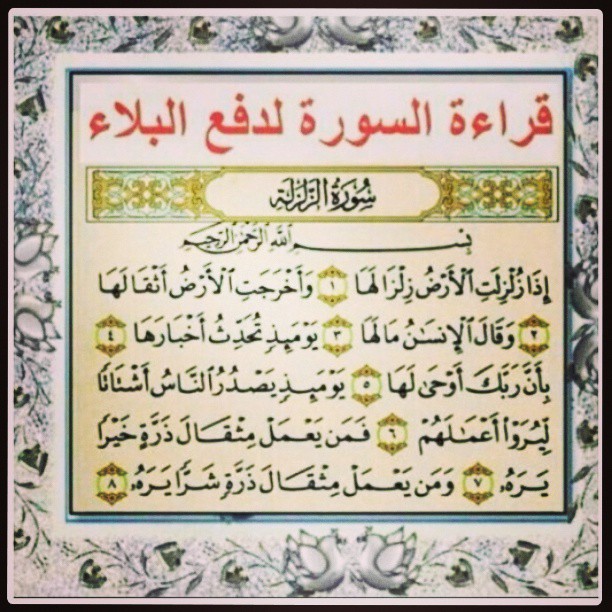 قراءة السورة لدفع البلاء
سُورَةُ الزَّلْزَلَةِ
بِسْمِ اللَّهِ الرَّحْمَٰنِ الرَّحِيمِ
إِذَا زُلْزِلَتِ ٱلْأَرْضُ زِلْزَالَهَا ١ وَأَخْرَجَتِ ٱلْأَرْضُ أَثْقَالَهَا
٢ وَقَالَ ٱلْإِنسَٰنُ مَالَهَا ٣ يَوْمَئِذٍ تُحَدِّثُ أَخْبَارَهَا ٤
بِأَنَّ رَبَّكَ أَوْحَىٰ لَهَا ٥ يَوْمَئِذٍ يَصْدُرُ ٱلنَّاسُ أَشْتَاتًا
لِّيُرَوْا۟ أَعْمَٰلَهُمْ ٦ فَمَن يَعْمَلْ مِثْقَالَ ذَرَّةٍ خَيْرًا
يَرَهُۥ ٧ وَمَن يَعْمَلْ مِثْقَالَ ذَرَّةٍ شَرًّا يَرَهُۥ ٨